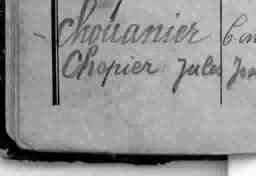 Chouanier
Chopier Jules